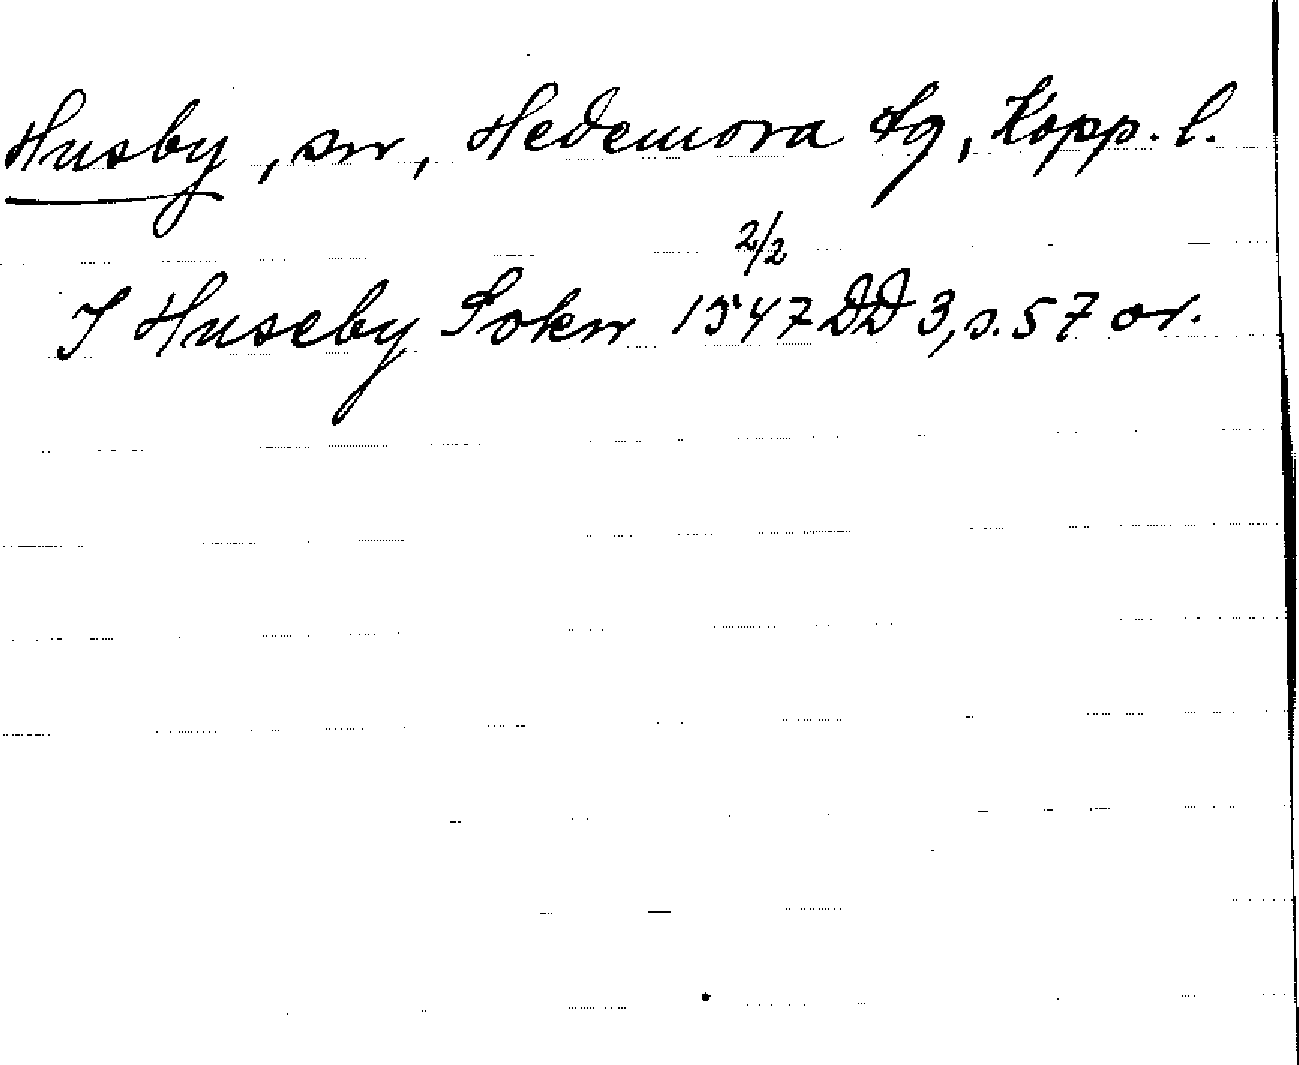 Husby, sn, Hedemora tg, Kopp. l.
2/2
I Huseby Sokn 1547 DD 3, s. 57 or.